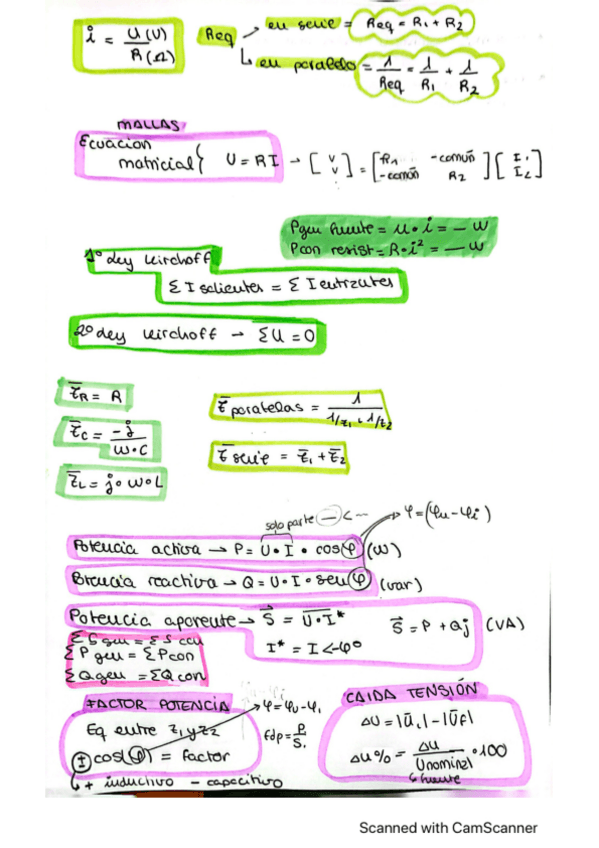 i = U(V) / R(Ω)
Req → en serie = Req = R1 + R2
↳ en paralelo = 1/Req = 1/R1 + 1/R2
MALLAS
Ecuacion matricial { U = RI → [V V] = [R1 -común -común R2] [I1 I2]
Pgen fuente = u · i = — W
Pcon resist = R · i² = — W
1º Ley Kirchoff
Σ I salientes = Σ I entrantes
2º Ley Kirchoff → ΣU = 0
Z̄R = R
Z̄ paralelas = 1 / 1/z1 + 1/z2
Z̄C = -j / W·C
Z̄ serie = Z̄1 + Z̄2
Z̄L = j · W · L
solo parte — <--- φ = (φu - φi)
Potencia activa → P = U · I · cos φ (W)
Potencia reactiva → Q = U · I · sen φ (var)
Potencia aparente → S = U · I* S = P + Qj (VA)
I* = I<-φº
Σ S gen = Σ S con
Σ P gen = Σ P con
Σ Q gen = Σ Q con
FACTOR POTENCIA
φ = φu - φi
Eq entre z1 y z2
fdp = P/S
± cos(φ) = factor
↳ + inductivo - capacitivo
CAIDA TENSIÓN
ΔU = |Ūi| - |Ūf|
ΔU% = ΔU / Unominal · 100
↳ fuente
Scanned with CamScanner